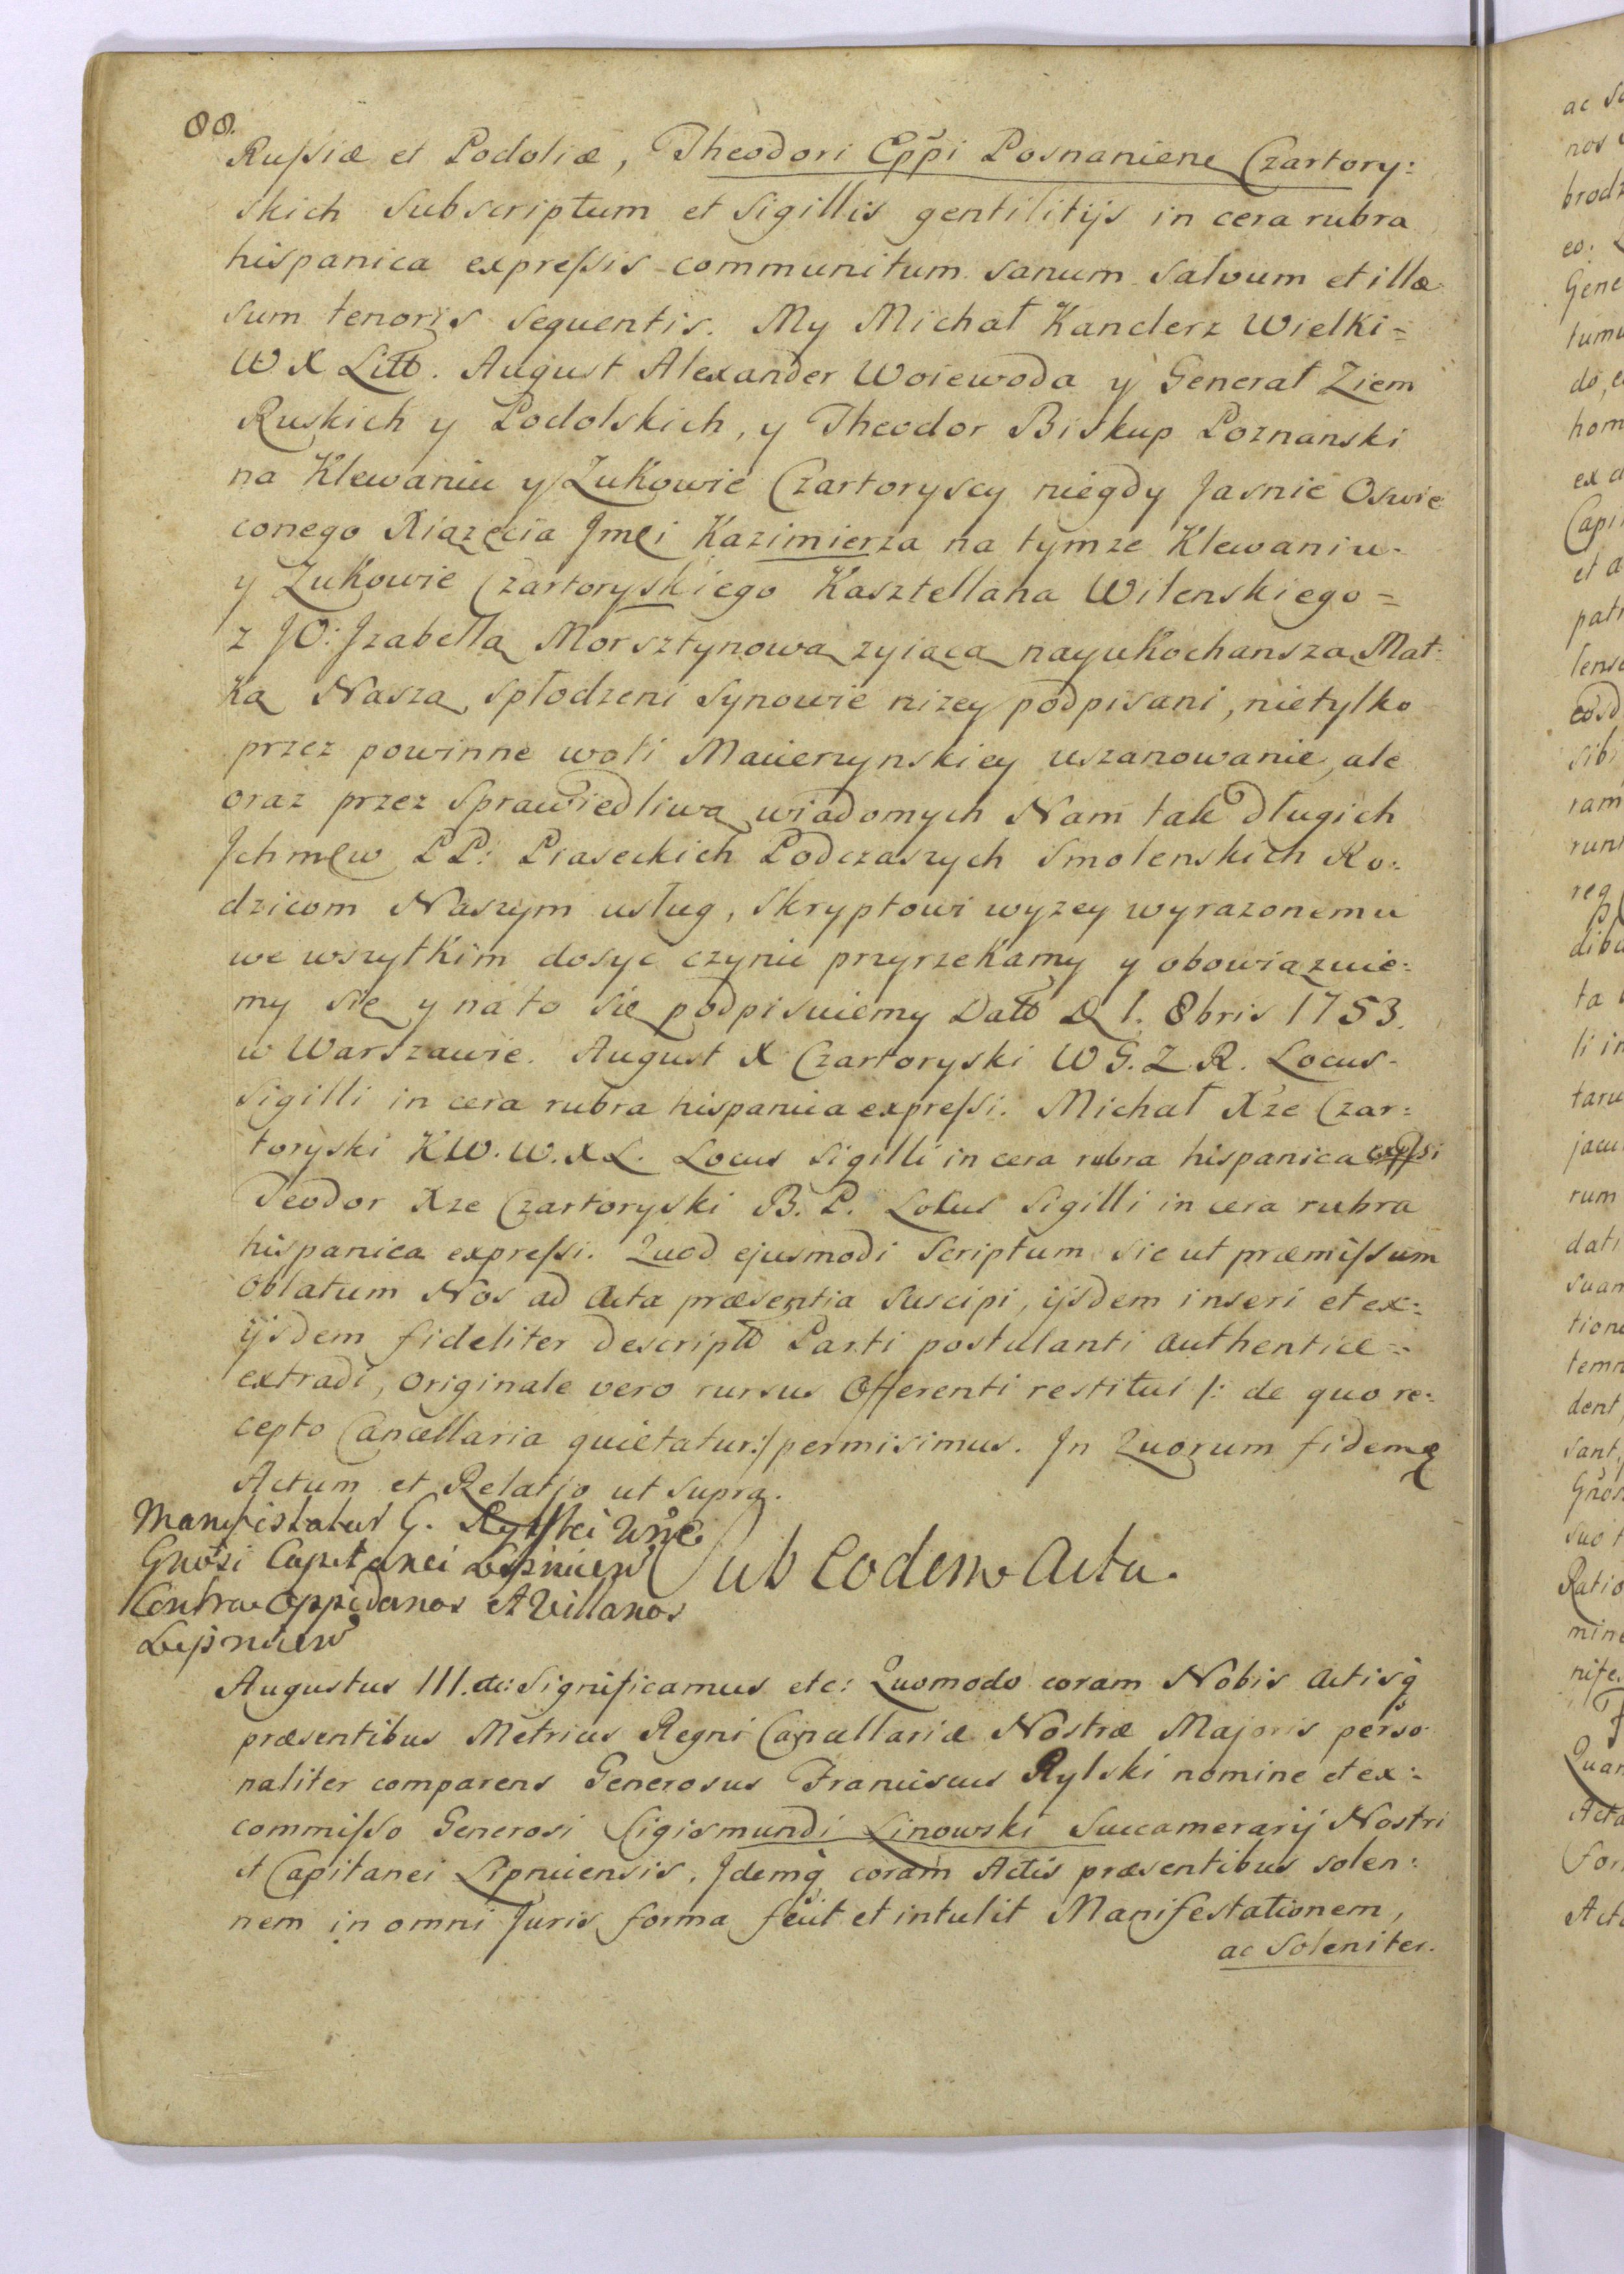 88.
Russiæ et Podoliæ, Theodori Eppi Posnaniene Czartory:
skich Subscriptum et Sigillis gentilitijs in cera rubra
hispanica expressis communitum sanum salvum et illæ
sum tenoris sequentis. My Michał Kanclerz Wielki=
W X Litt. August Alexander Woiewoda y Generał Ziem
Ruskich y Podolskich, y Theodor Biskup Poznanski
na Klewaniu y Zukowie Czartoryscy niegdy Jasnie Oswie
conego Xiązęcia Jmci Kazimierza na tymze Klewaniu
y Zukowie Czartoryskiego Kasztellana Wilenskiego=
z JO: Jzabellą Morsztynową zyiącą nayukochanszą Mat:
ką Naszą, spłodzeni Synowie nizey podpisani, nietylko
przez powinne woli Macierzynskiey uszanowanie, ale
oraz przez Sprawiedliwą wiadomych Nam tak długich
Jchmcw PP: Piaseckich Podczaszych Smolenskich Ro:
dzicom Naszym usług, Skryptowi wyzey wyrazonemu
we wszytkim dosyc czynic przyrzekamy y obowiązuie:
my się y na to się podpisuiemy Datt D 1. 8bris 1753.
w Warszawie. August X Czartoryski W G. Z. R. Locus
Sigilli in cera rubra hispanica expressi. Michał Xże Czar:
toryski K W. W. X L. Locus Sigilli in cera rubra hispanica
Teodor Xze Czartoryski B. P. Locus Sigilli in cera rubra
hispanica expressi. Quod ejusmodi Scriptum sic ut præmissum
oblatum Nos ad Acta præsentia Suscipi, ijsdem inseri et ex:
ijsdem fideliter descriptt Parti postulanti authentice=
extradi, originale vero rursus Offerenti restitui /: de quo re:
cepto Cancellaria quietatur:/ permisimus. Jn Quorum fidem
Actum et Relatio ut supra.
Manifestatur G. Rylski
Gnosi Capitanei Lipnicen
Contra Oppidanos et Villanos
Lipnicen
Sub Eodem Actu.
Augustus III. etc: Significamus etc: Quomodo coram Nobis Actisq
præsentibus Metrices Regni Cancellariæ Nostræ Majoris perso
naliter comparens Generosus Franciscus Rylski nomine et ex:
commisso Generosi Sigismundi Linowski Succamerarij Nostri
et Capitanei Lipnicensis, Jdemq coram Actis præsentibus solen:
nem in omni Juris forma fecit et intulit Manifestationem,
ac Soleniter.